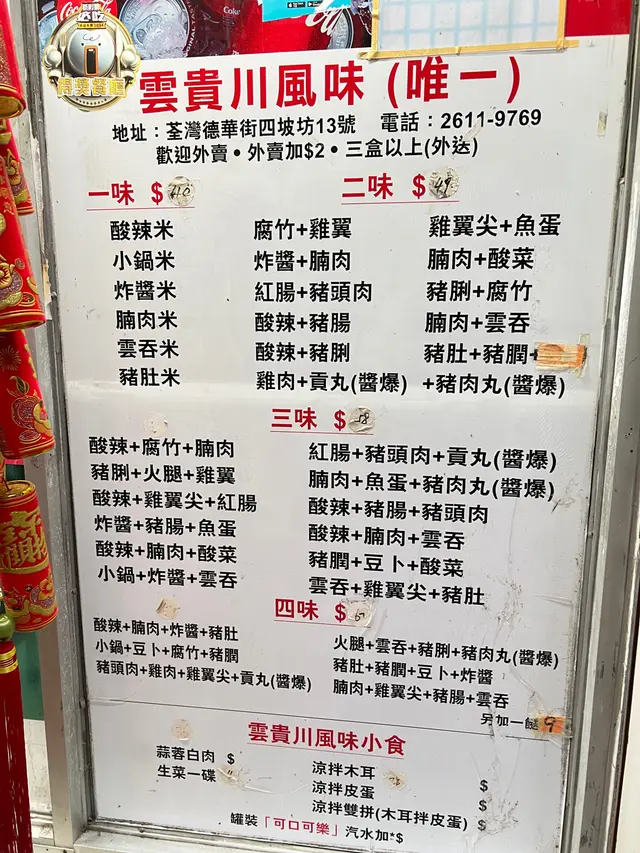 Coke
雲貴川風味 (唯一)
地址：荃灣德華街四坡坊13號 電話：2611-9769
歡迎外賣•外賣加$2•三盒以上(外送)
一味 $40
二味 $49
酸辣米 腐竹+雞翼 雞翼尖+魚蛋
小鍋米 炸醬+腩肉 腩肉+酸菜
炸醬米 紅腸+豬頭肉 豬脷+腐竹
腩肉米 酸辣+豬腸 腩肉+雲吞
雲吞米 酸辣+豬脷 豬肚+豬膶+
豬肚米 雞肉+貢丸(醬爆) +豬肉丸(醬爆)
三味 $58
酸辣+腐竹+腩肉 紅腸+豬頭肉+貢丸(醬爆)
豬脷+火腿+雞翼 腩肉+魚蛋+豬肉丸(醬爆)
酸辣+雞翼尖+紅腸 酸辣+豬腸+豬頭肉
炸醬+豬腸+魚蛋 酸辣+腩肉+雲吞
酸辣+腩肉+酸菜 豬膶+豆卜+酸菜
小鍋+炸醬+雲吞 雲吞+雞翼尖+豬肚
四味 $
酸辣+腩肉+炸醬+豬肚 火腿+雲吞+豬脷+豬肉丸(醬爆)
小鍋+豆卜+腐竹+豬膶 豬肚+豬膶+豆卜+炸醬
豬頭肉+雞肉+雞翼尖+貢丸(醬爆) 腩肉+雞翼尖+豬腸+雲吞
另加一餸9
雲貴川風味小食
蒜蓉白肉 $ 涼拌木耳 $
生菜一碟 涼拌皮蛋 $
涼拌雙拼(木耳拌皮蛋) $
罐裝「可口可樂」汽水加*$